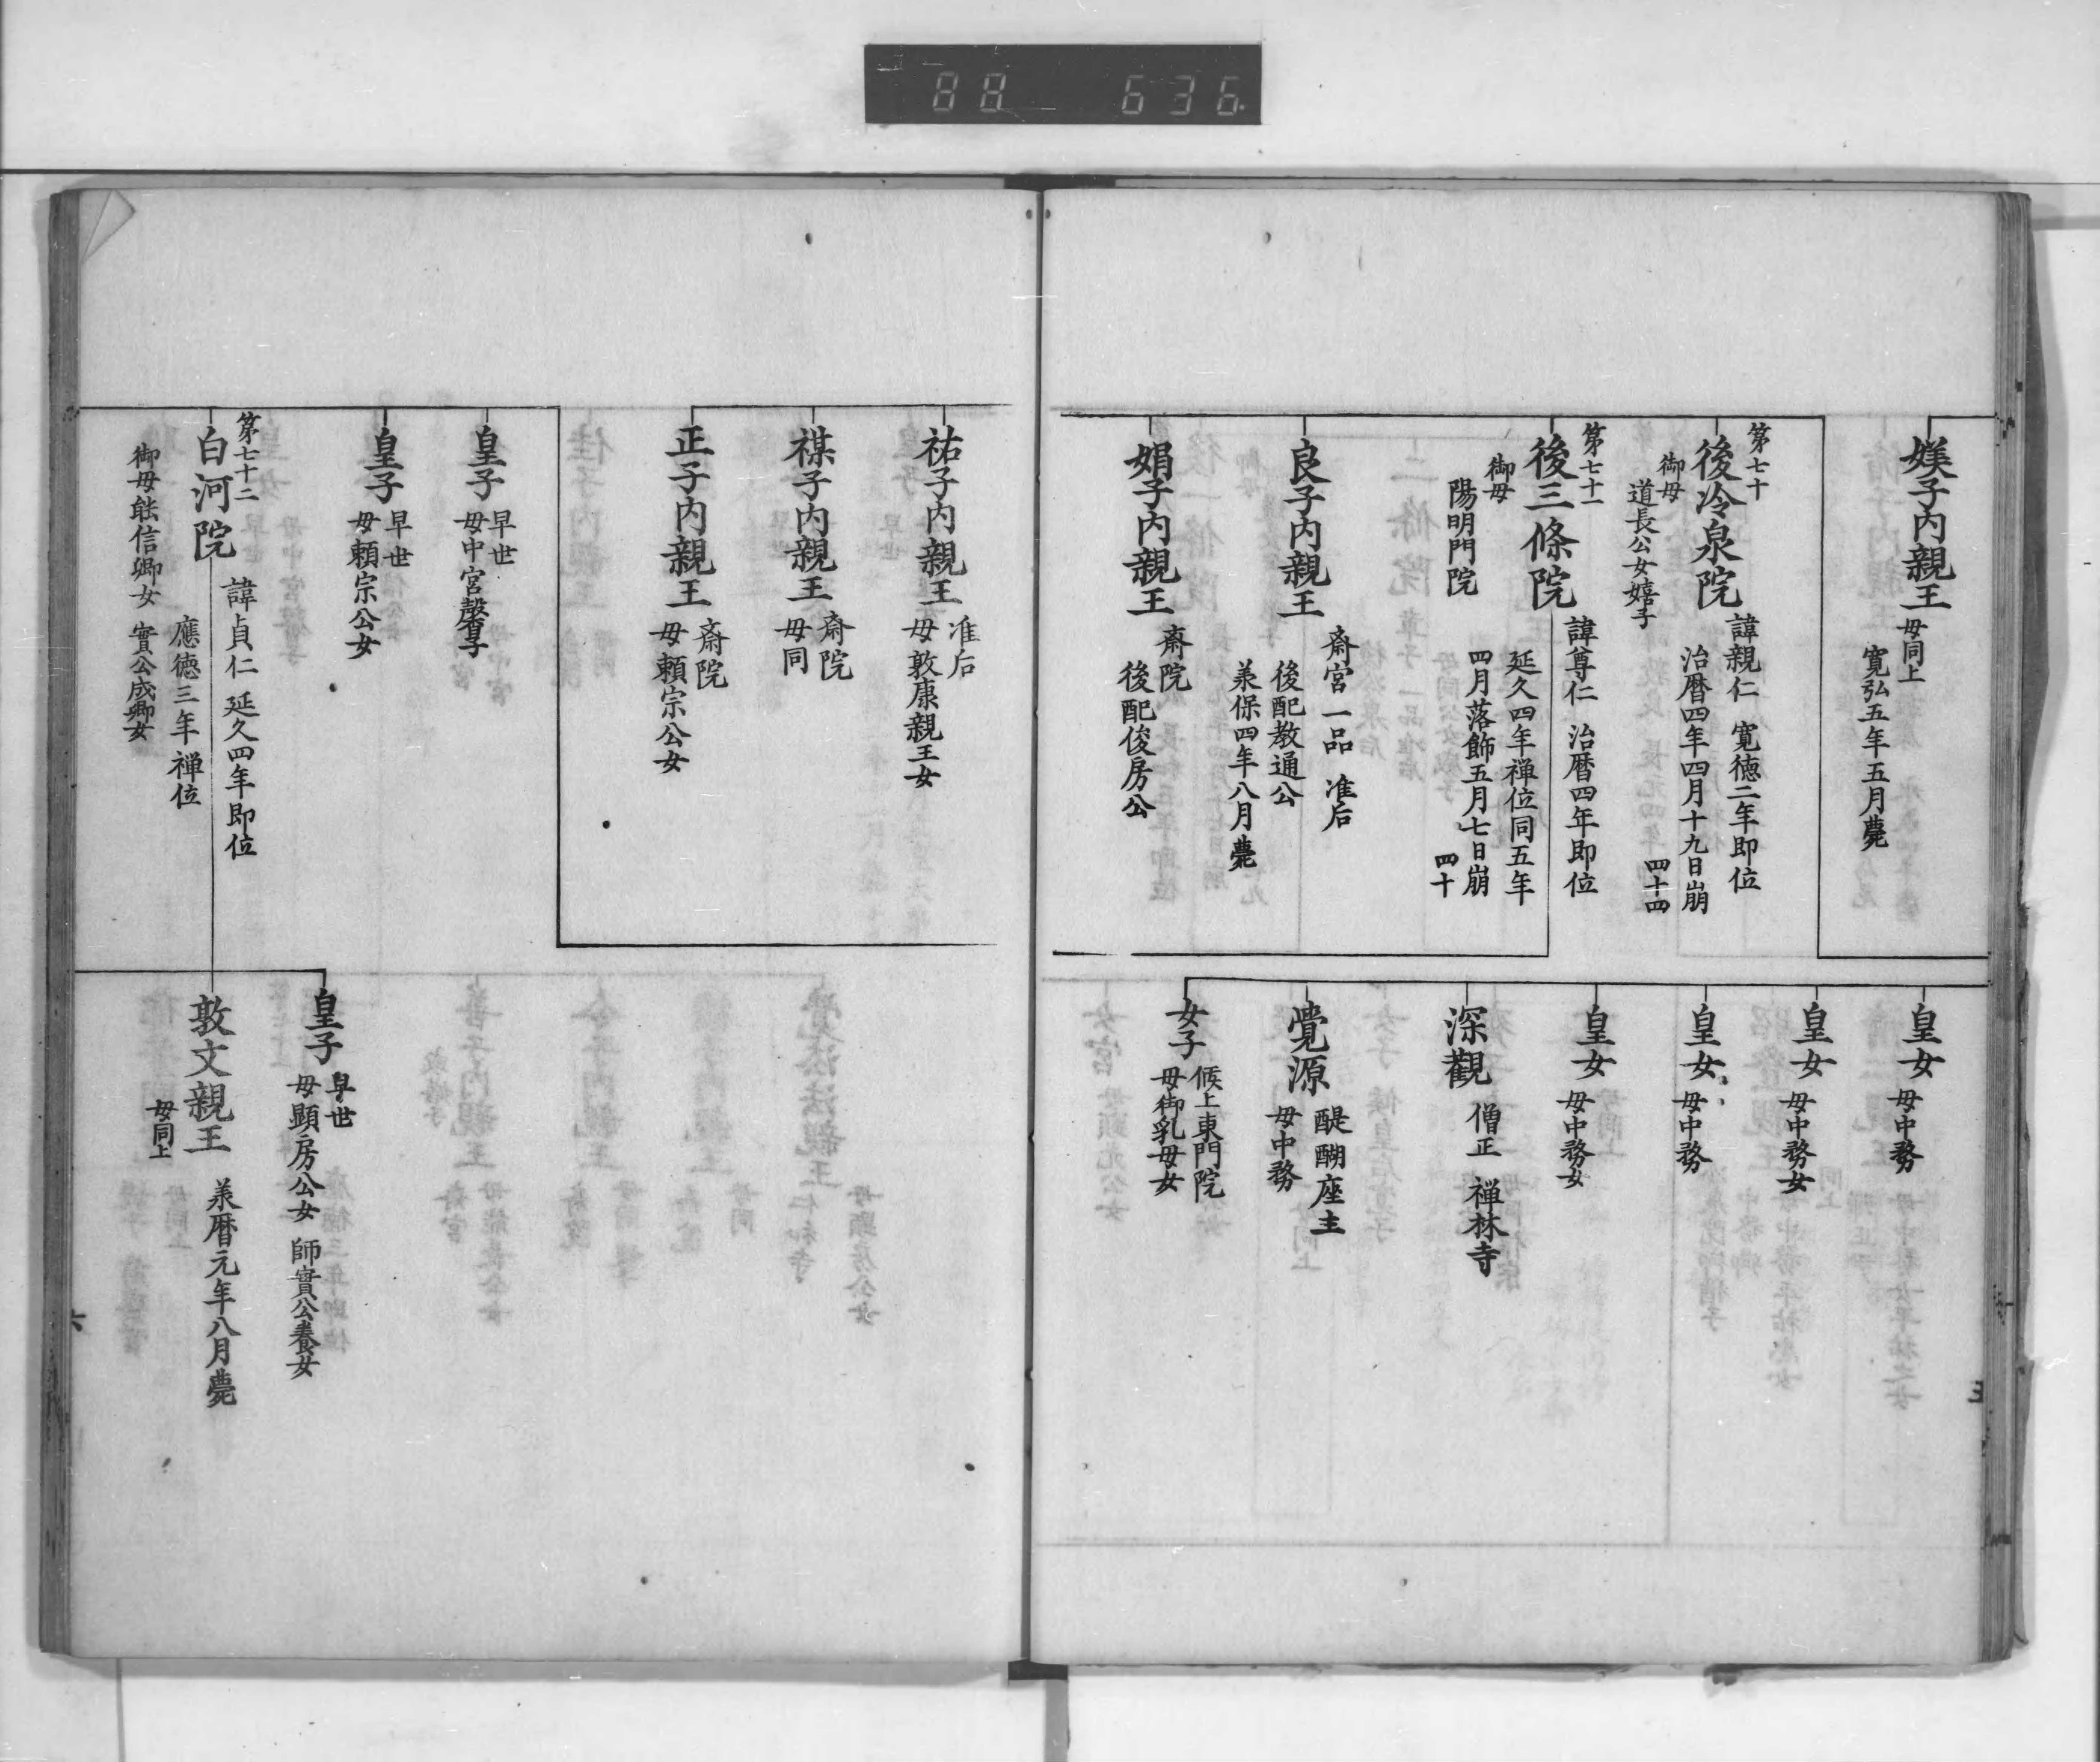 88 636
媄子内親王
母同上
寛弘五年五月薨
第七十
後冷泉院
御母
道長公女嬉子
諱親仁 寛徳二年即位
治暦四年四月十九日崩
四十四
第七十一
後三條院
御母
陽明門院
諱尊仁 治暦四年即位
延久四年禅位同五年
四月落飾五月七日崩
四十
良子内親王
斎宮一品 准后
後配教通公
承保四年八月薨
娟子内親王
斎院
後配俊房公
皇女
母中務
皇女
母中務女
皇女
母中務
皇女
母中務女
深觀
僧正 禅林寺
覺源
醍醐座主
母中務
女子
候上東門院
母御乳母女
祐子内親王
准后
母敦康親王女
禖子内親王
斎院
母同
正子内親王
斎院
母頼宗公女
皇子
早世
母中宮馨子
皇子
早世
母頼宗公女
第七十二
白河院
御母能信卿女 實公成卿女
諱貞仁 延久四年即位
應徳三年禅位
皇子
早世
母顕房公女 師實公養女
敦文親王
母同上
承暦元年八月薨
六